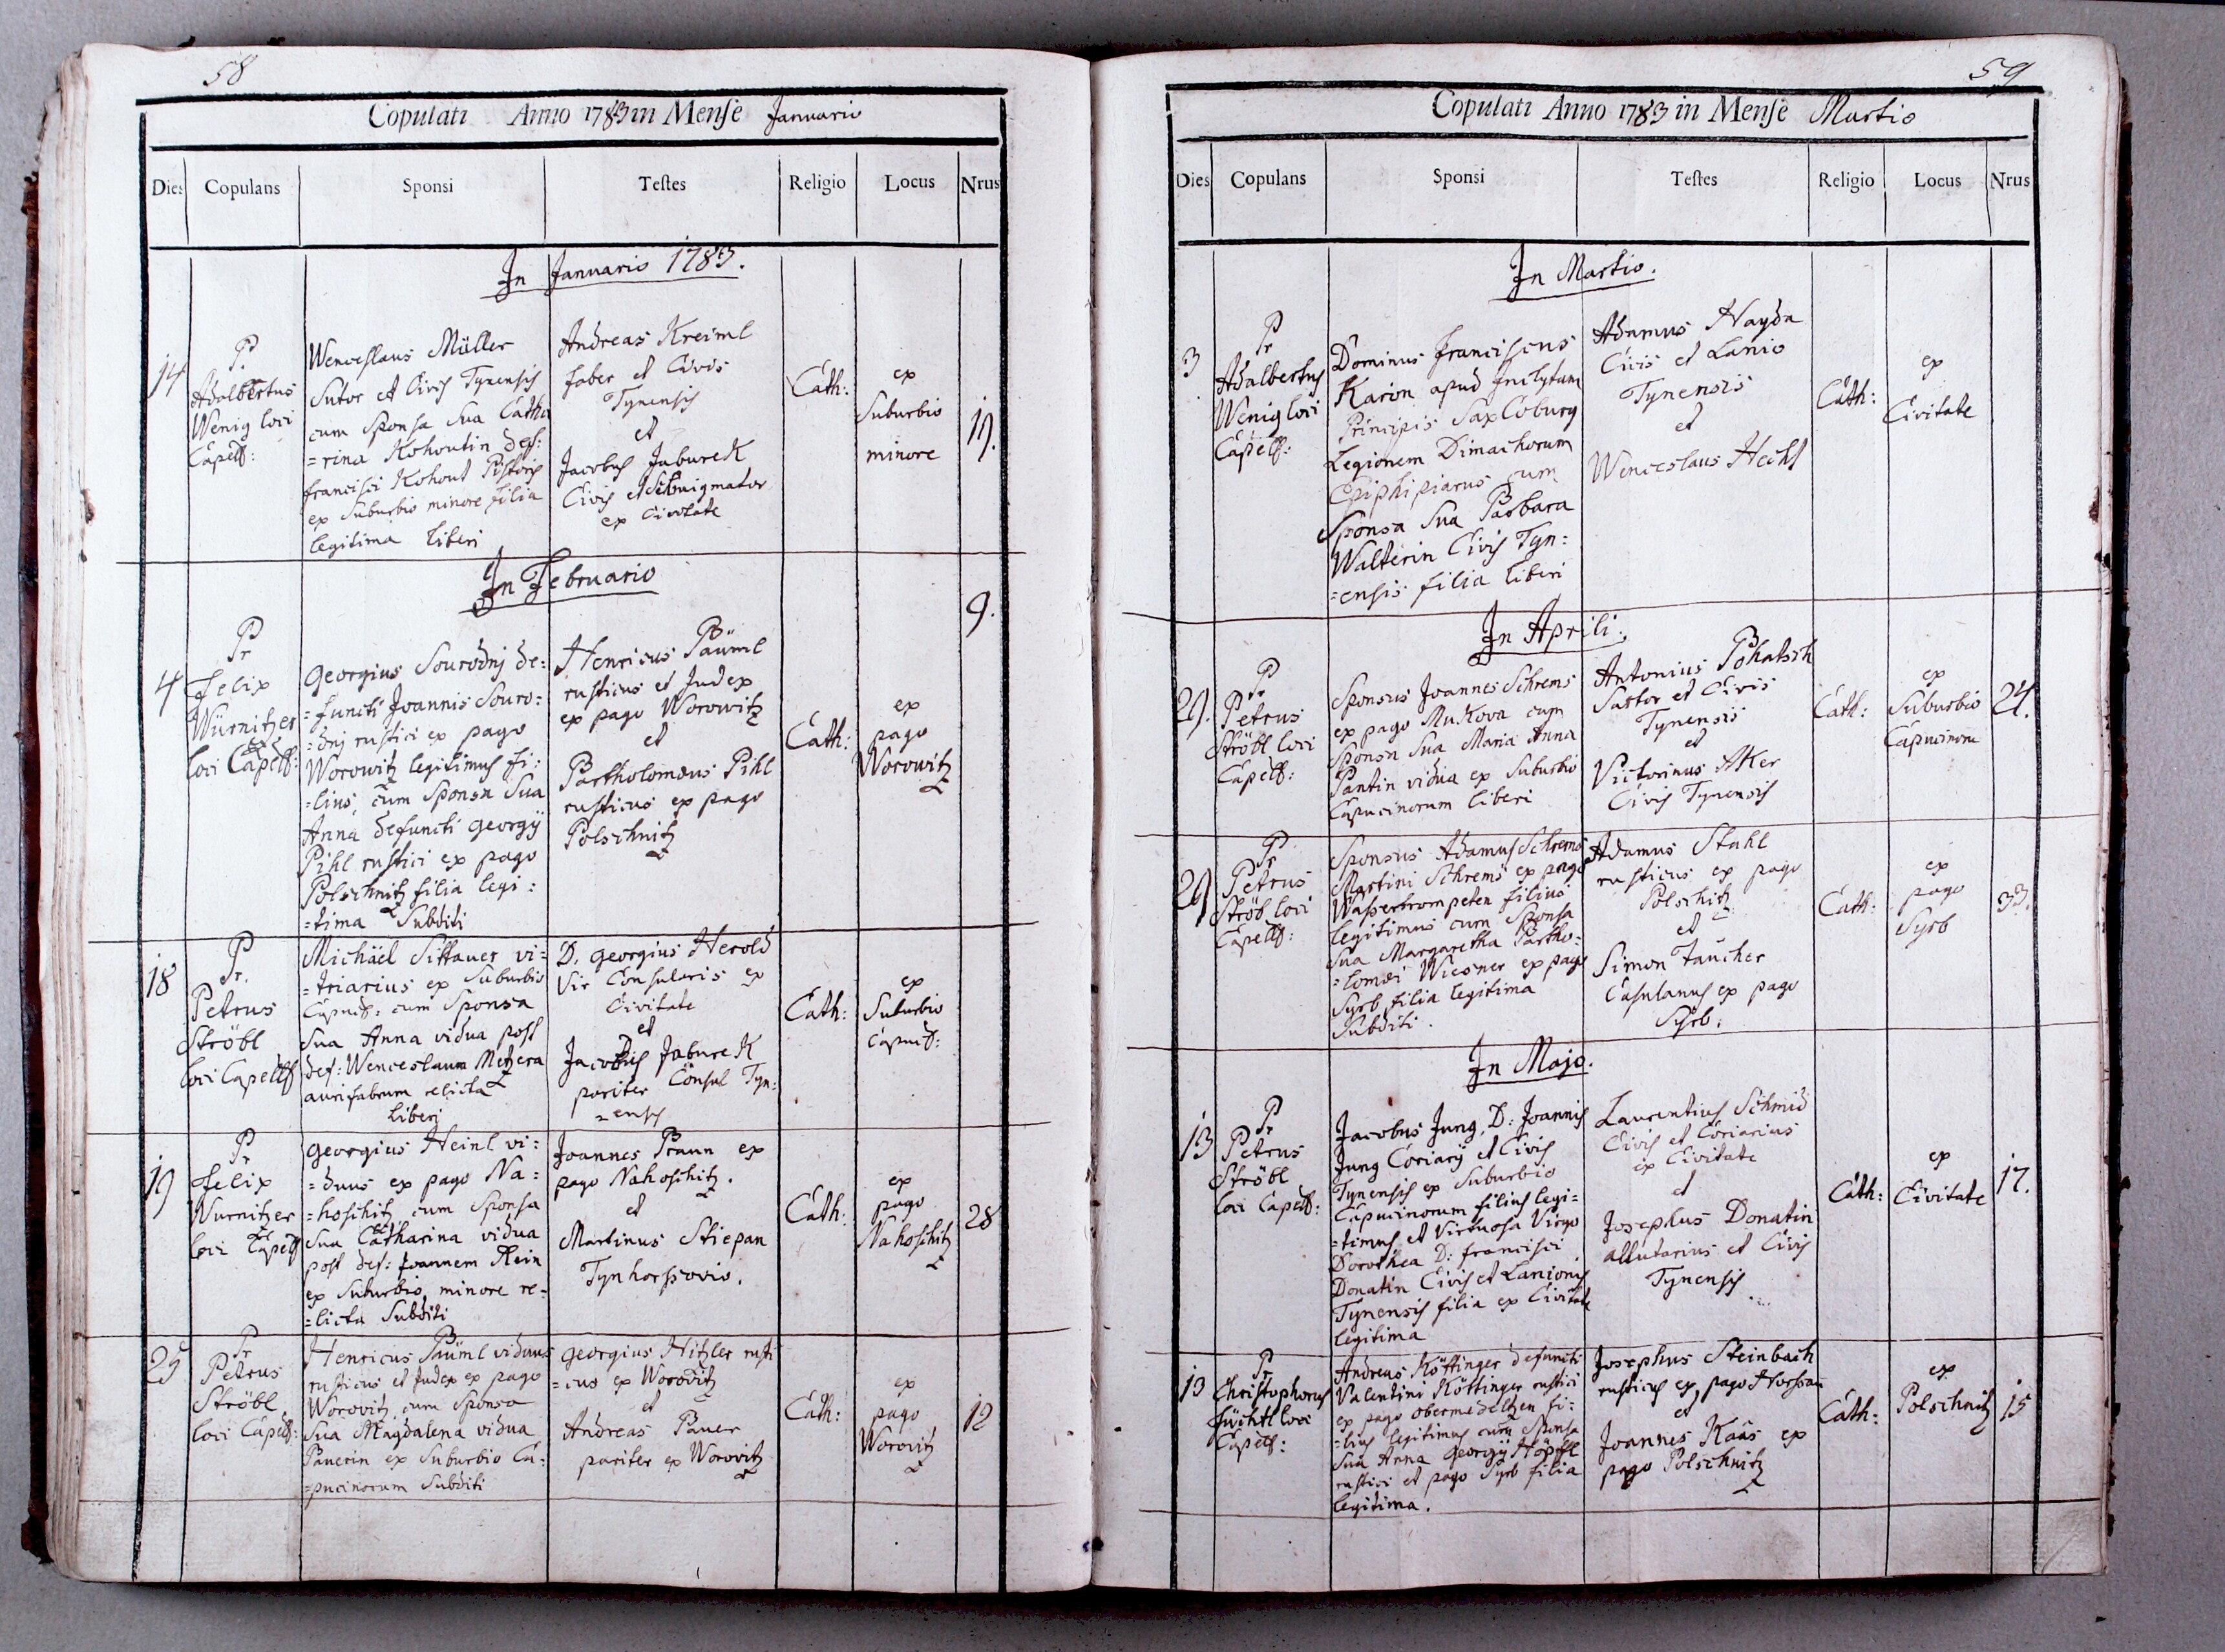 58
Copulati Anno 1783 in Mense Januario
Dies Copulans Sponsi Testes Religio Locus Nrus
In Januario 1783.
14
P.
Adalbertus
Wenig loci
Capell:
Wenceslaus Müller
Sutor et Civis Tynensis
cum Sponsa Sua Catha
=rina Kohoutin def:
Francisci Kohout Pistoris
ex Suburbio minore filia
legitima liberi
Andreas Kreiml
faber et Civis
Tynensis
et
Jacobus Jaburek
Civis et
ex Civitate
Cath:
ex
Suburbio
minore
19.
In Februario
4
Pr
Felix
Würnitzer
loci Capell:
Georgius Sourodnj de:
=functi Joannis Souro:
=dnj rustici ex pago
Worowitz legitimus fi:
=lius, cum Sponsa Sua
Anna defuncti Georgÿ
Pihl rustici ex pago
Polschnitz filia legi:
=tima Subditi
Henricus Päuml
rusticus et Judex
ex pago Worowitz
et
Partholomæus Pihl
rusticus ex pago
Polschnitz
Cath:
ex
pago
Worowitz
9.
18
Pr.
Petrus
Ströbl
loci Capell
Michäel Sittauer vi:
=triarius ex Suburbio
Capuc: cum Sponsa
Sua Anna vidua post
def: Wenceslaum Metzera
aurifabrum relicta
Liberi
D. Georgius Herold
Vir Consularis ex
Civitate
et
Jacobus Jaburek
pariter Consul Tyn:
=ensis
Cath:
ex
Suburbio
Capuc:
19
Pr
Felix
Wurnitzer
loci Capell
Georgius Heinl vi:
=duus ex pago Na:
=hoschitz cum Sponsa
Sua Catharina vidua
post def: Joannem Rein
ex Suburbio minore re:
=licta Subditi
Joannes Praun ex
pago Nahoschitz.
et
Martinus Stiepan
Tynhorssovio.
Cath:
ex
pago
Nahoschitz
28
25
Pr
Petrus
Ströbl
loci Capell:
Henricus Päuml viduus
rusticus et Judex ex pago
Worovitz cum Sponsa
Sua Magdalena vidua
Pauerin ex Suburbio Ca:
=pucinorum Subditi
Georgius Hitzler rusti
=cus ex Worovitz
et
Andreas Pauer
pariter ex Worovitz
Cath:
ex
pago
Worovitz
12
59
Copulati Anno 1783 in Mense Martio
Dies Copulans Sponsi Testes Religio Locus Nrus
In Martio.
3
Pr
Adalbertus
Wenig loci
Capell:
Dominus Franciscus
Karon apud Inclytam
Principis Sax Coburg
Legionem Dimachorum
Ephiphiarus cum
Sponsa Sua Barbara
Walterin Civis Tyn:
=ensis filia liberi
Adamus Hayda
Civis et Lanio
Tynensis
et
Wenceslaus Hecht
Cath:
ex
Civitate
In Aprili.
29.
Pr
Petrus
Ströbl loci
Capell:
Sponsus Joannes Schrems
ex pago Mukova cum
Sponsa Sua Maria Anna
Pantin vidua ex Suburbio
Capucinorum liberi
Antonius Pohatsch
Sartor et Civis
Tynensis
et
Victorinus AKer
Civis Tynensis
Cath:
ex
Suburbio
Capucinoru
24.
29
Pr
Petrus
Ströb loci
Capell:
Sponsus Adamus Schrems
Martini Schrems ex pago
Wassertrompeten filius
legitimus cum Sponsa
Sua Margaretha Partho:
=lomæi Wiesner ex pago
Syrb filia legitima
Subditi.
Adamus Stahl
rusticus ex pago
Polschitz
et
Simon Taucher
Casulanus ex pago
Syrb.
Cath:
ex
pago
Syrb
33.
In Majo.
13
Pr
Petrus
Ströbl
loci Capell:
Jacobus Jung, D: Joannis
Jung Coriarÿ et Civis
Tynensis ex Suburbio
Capucinorum filius legi=
=timus et Virtuosa Virgo
Dorothea D: Francisci
Donatin Civis et Lanionis
Tynensis filia ex Civitate
legitima
Laurentius Schmid
Civis et Coriarius
ex Civitate
et
Josephus Donatin
allutarius et Civis
Tynensis
Cath:
ex
Civitate
17.
13
Pr.
Christophorus
loci
Capell:
Andreas Köttinger defuncti
Valentini Köttinger rustici
ex pago obermedeltzen fi:
=lius legitimus cum Sponsa
Sua Anna Georgÿ Höpfl
rustici et pago Syrb filia
legitima.
Josephus Steinbach
rusticus ex pago Horssau
et
Joannes Kaas ex
pago Polschnitz
Cath:
ex
Polschnitz
15